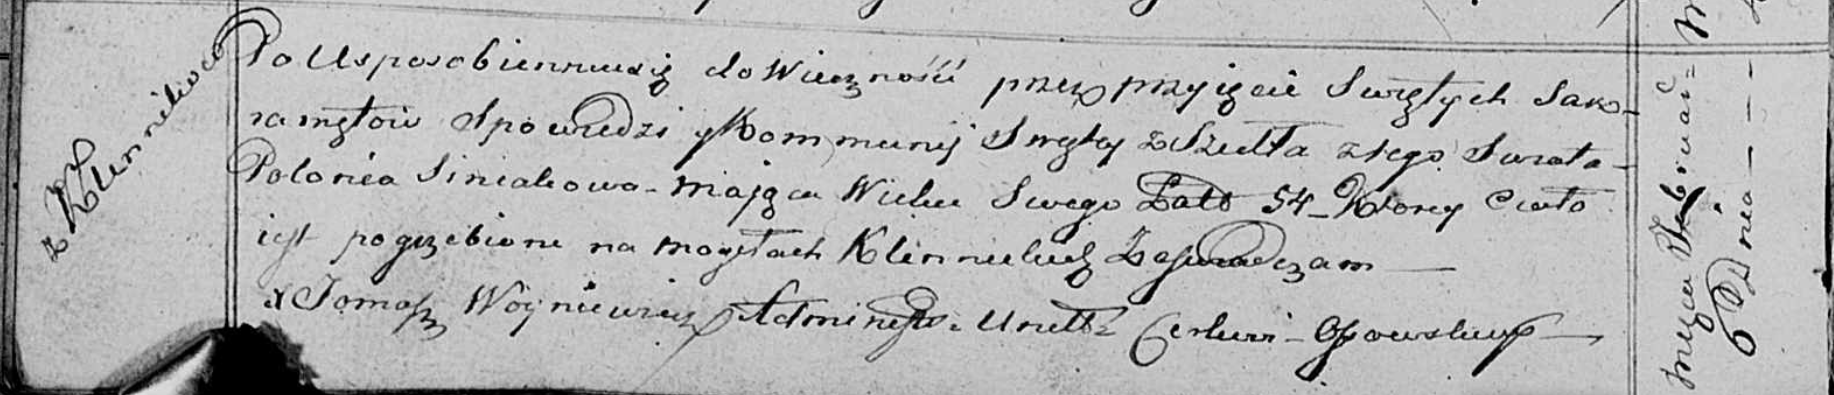 z Klennikow
Po Usposobieniusię do Wieczności przez przyięcie Swiętych Sak-
ramętow Spowiedzi y Kommunij Swiętey zSzedła ztego Swiata-
Polonia Siniakowa - maiąca Wieku Swego Lat 54 - Ktorey Ciało
iest pogrzebione na mogiłach Klennickich Zaswiadczam —
X Tomasz Woyniewicz Administr. Unitt Cerkwi -
miesiąca
6 Dnia